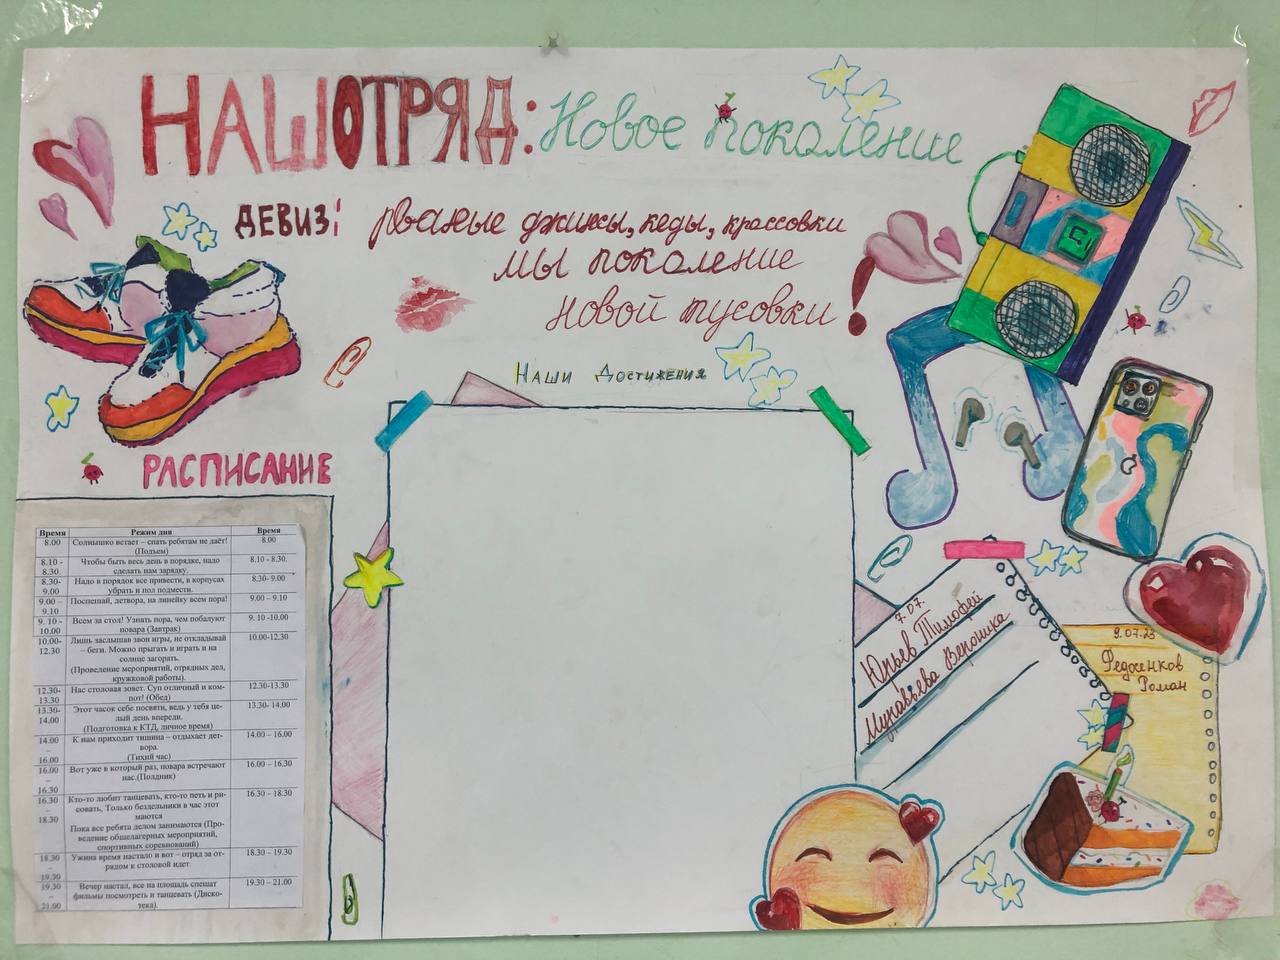 НАШ ОТРЯД: Новое поколение
ДЕВИЗ: рваные джинсы, кеды, крассовки
мы поколение
новой тусовки!
Наши Достижения
РАСПИСАНИЕ
Время Режим дня Время
8.00 Солнышко встает – спать ребятам не даёт! 8.00
(Подъем)
8.10 - Чтобы быть весь день в порядке, надо 8.10 - 8.30.
8.30. сделать нам зарядку.
8.30- Надо в порядок все привести, в корпусах 8.30- 9.00
9.00 убрать и пол подмести.
9.00 – Поспешай, детвора, на линейку всем пора! 9.00 – 9.10
9.10
9. 10 - Всем за стол! Узнать пора, чем побалуют 9. 10 -10.00
10.00 повара (Завтрак)
10.00- Лишь заслышав звон игры, не откладывай 10.00-12.30
12.30 – беги. Можно прыгать и играть и на
солнце загорать.
(Проведение мероприятий, отрядных дел,
кружковой работы).
12.30- Нас столовая зовет. Суп отличный и ком- 12.30-13.30
13.30 пот! (Обед)
13.30- Этот часок себе посвяти, ведь у тебя це- 13.30- 14.00
14.00 лый день впереди.
(Подготовка к КТД, личное время)
14.00 К нам приходит тишина – отдыхает дет- 14.00 – 16.00
– вора.
16.00 (Тихий час)
16.00 Вот уже в который раз, повара встречают 16.00 – 16.30
– нас.(Полдник)
16.30
16.30 Кто-то любит танцевать, кто-то петь и ри- 16.30 – 18.30
– совать, Только бездельники в час этот
18.30 маются
Пока все ребята делом занимаются (Про-
ведение общелагерных мероприятий,
спортивных соревнований)
18.30 Ужина время настало и вот – отряд за от- 18.30 – 19.30
– рядом к столовой идет.
19.30
19.30 Вечер настал, все на площадь спешат 19.30 – 21.00
– фильмы посмотреть и танцевать (Диско-
21.00 тека).
7.07.
Юрьев Тимофей
Муравьева Вероника
9.07.23
Федосенков
Роман